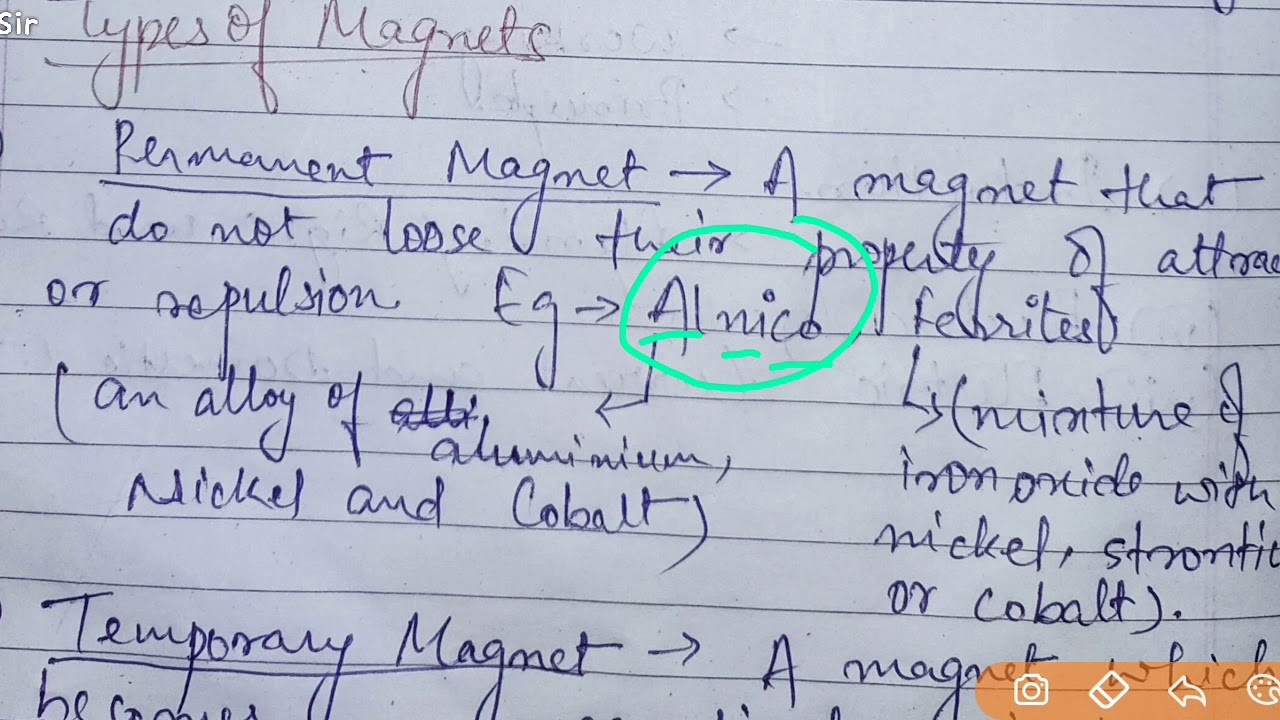 Sir
Types of Magnets
Permanent Magnet → A magnet that
do not loose their property of attrac
or repulsion Eg → Alnico, febrites
(an alloy of
aluminium,
Nickel and Cobalt)
↳ (mixture of
iron oxide with
nickel, strontic
or cobalt).
Temporary Magnet → A magnet which
becomes